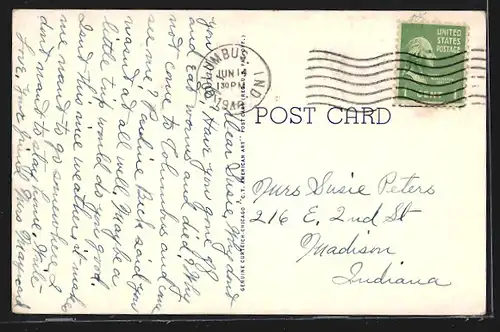 Dear Susie, Why don't
you come. Have you gone off
and eat worms and died? Why
not come to Columbus and see
me? Pauline Beck said you
wasn't at all well, maybe a
little trip would do you good.
Isn't this nice weather, it makes
me want to go somewhere I
don't want to stay home. Write
Love, your friend, Mrs
COLUMBUS, IND.
JUN 14
130 PM
UNITED
STATES
POSTAGE
1 CENT
POST CARD
GENUINE CURTEICH-CHICAGO "C. T. AMERICAN ART" POST CARD (REG. U. S. PAT. OFF.)
Mrs Susie Peters
216 E. 2nd St
Madison
Indiana